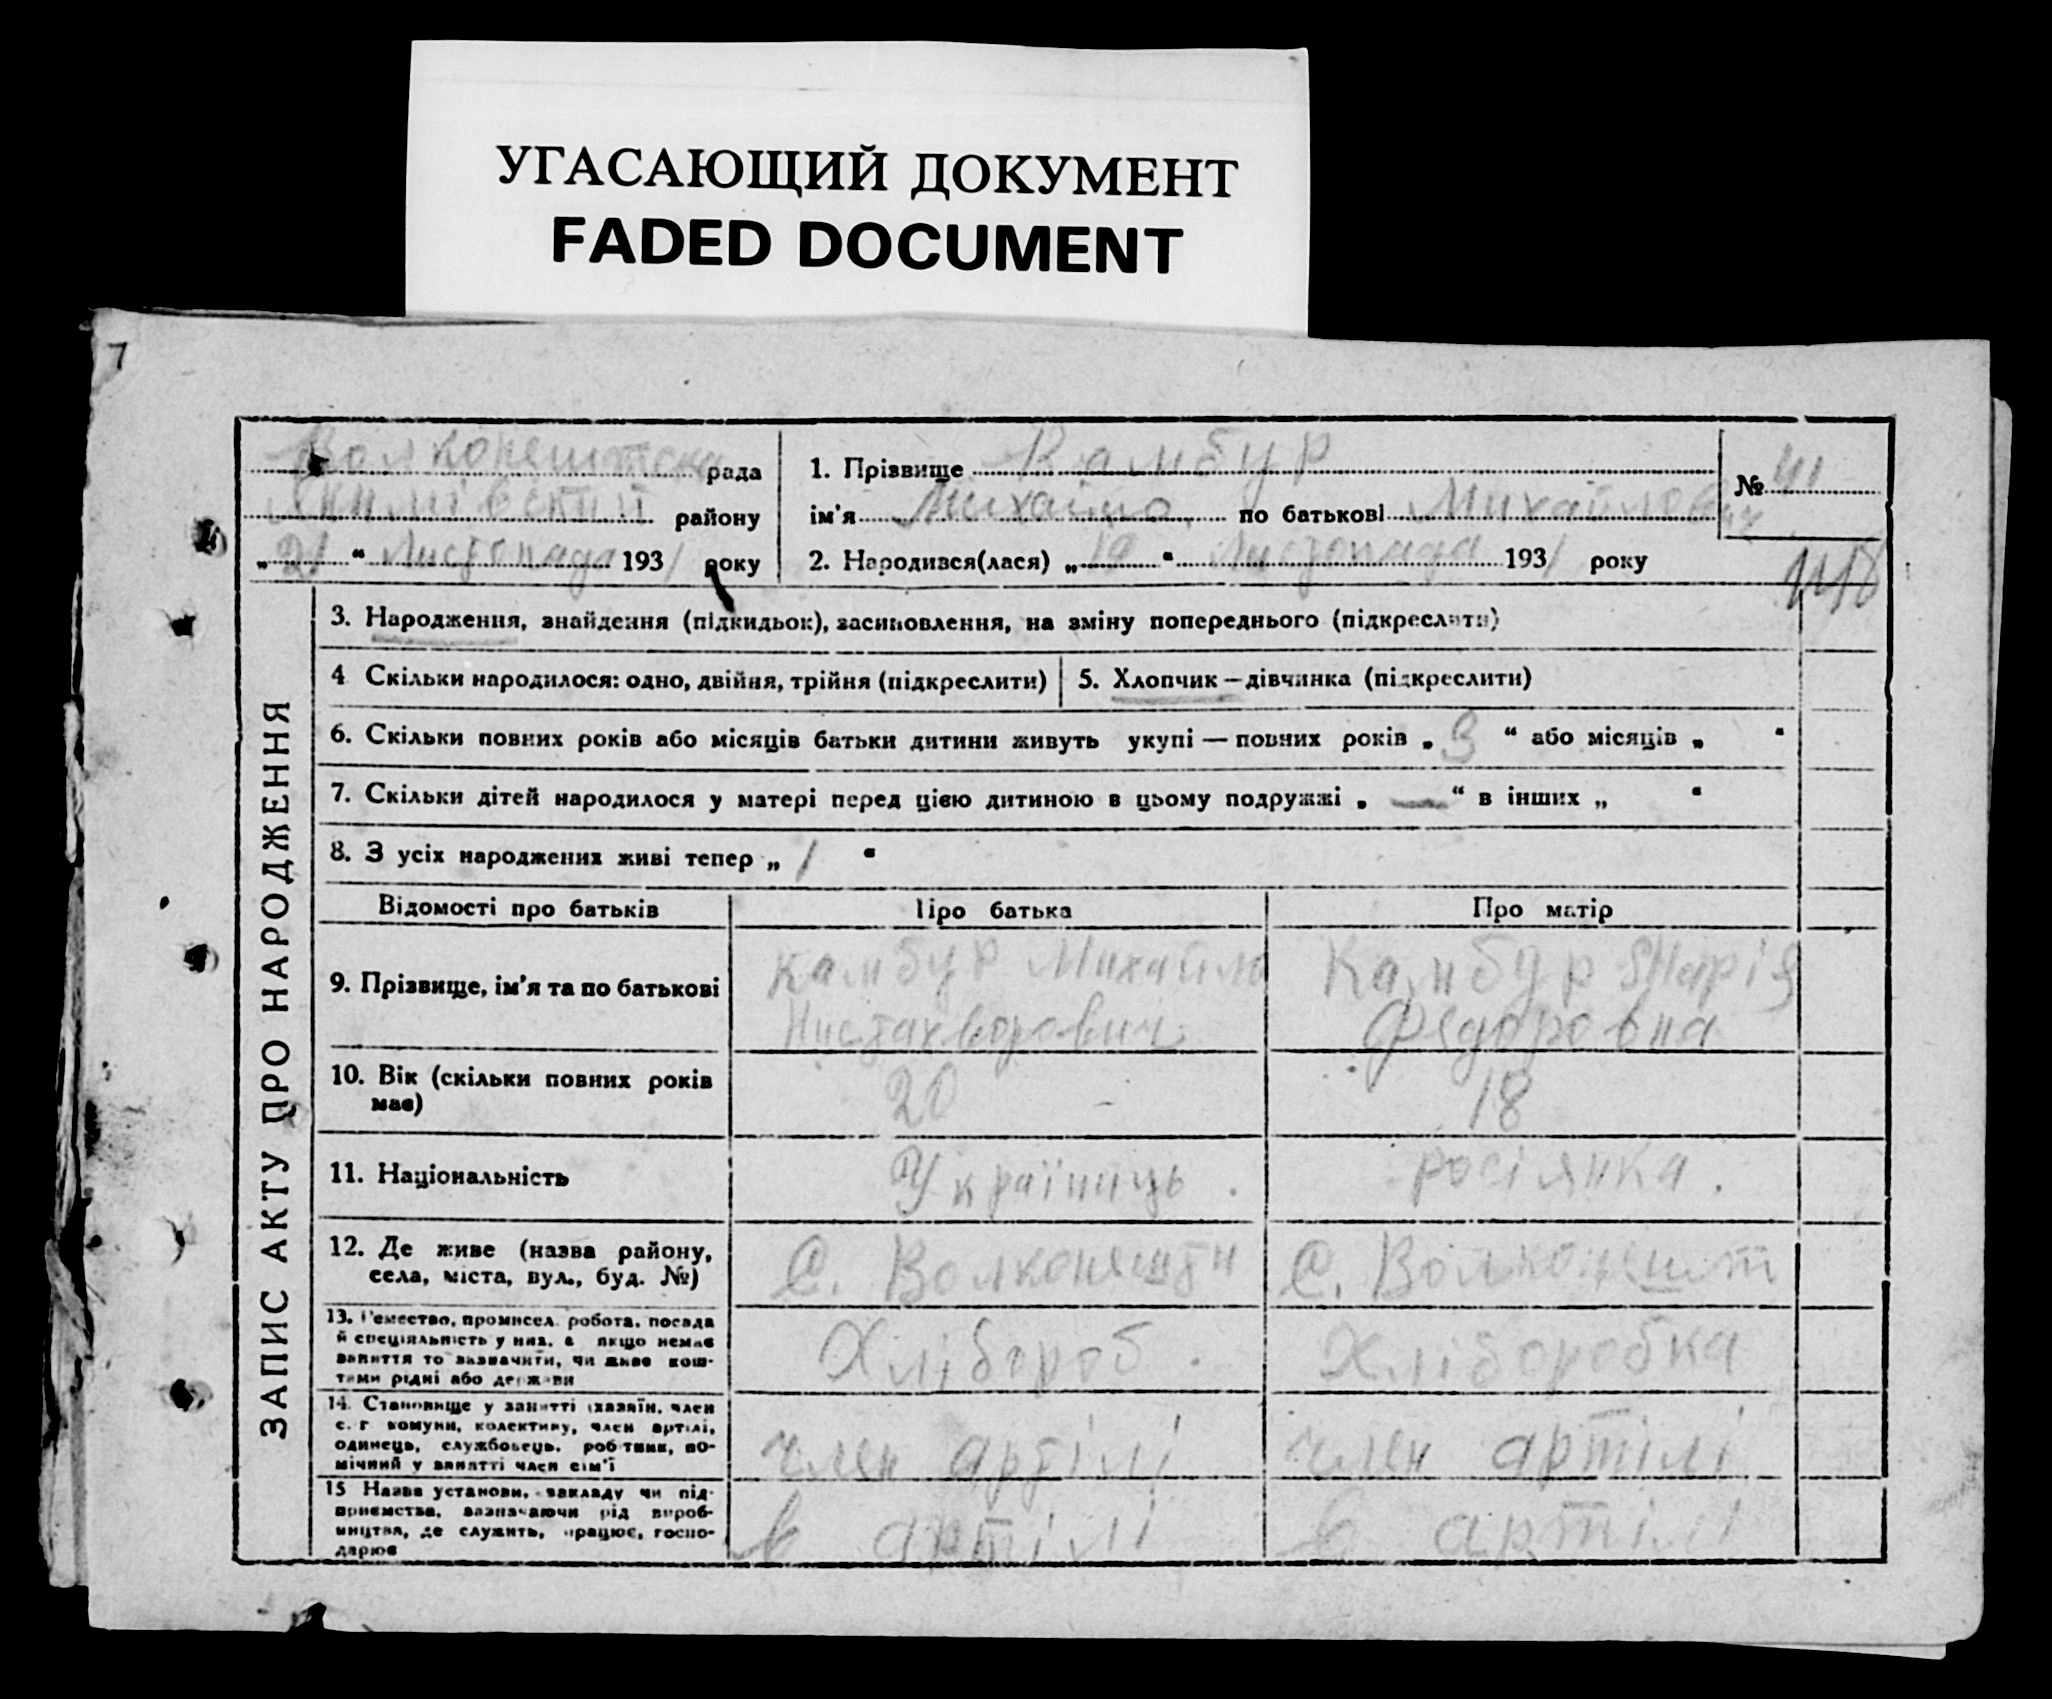 УГАСАЮЩИЙ ДОКУМЕНТ
FADED DOCUMENT
7
Волконештска рада
Якимівский району
„ 21 “ Листопада 1931 року
1. Прізвище Камбур
ім'я Михайло по батькові Михайлович
2. Народився(лася) „ 19 “ Листопада 1931 року
№ 41
1118
ЗАПИС АКТУ ПРО НАРОДЖЕННЯ
3. Народження, знайдення (підкидьок), засиновлення, на зміну попереднього (підкреслити)
4 Скільки народилося: одно, двійня, трійня (підкреслити)
5. Хлопчик – дівчинка (підкреслити)
6. Скільки повних років або місяців батьки дитини живуть укупі — повних років „ 3 “ або місяців „ “
7. Скільки дітей народилося у матері перед цією дитиною в цьому подружжі „ — “ в інших „ “
8. З усіх народжених живі тепер „ 1 “
Відомості про батьків
Про батька
Про матір
9. Прізвище, ім'я та по батькові
Камбур Михайло
Камбур Марія
Федоровна
10. Вік (скільки повних років
має)
20
18
11. Національність
Українець.
росіянка.
12. Де живе (назва району,
села, міста, вул., буд. №)
С. Волконешти
С. Волконешт
13. Ремество, промисел, робота, посада
й спеціяльність у них, а якщо немає
заняття то зазначити, чи живе кош-
тами рідні або держави
Хлібороб.
Хліборобка
14. Становище у занятті (хазяїн, член
с. г комуни, колективу, член артілі,
одинець, службовець, робітник, по-
мічний у занятті член сім'ї
член артілі
член артілі
15 Назва установи, закладу чи під-
приємства, зазначаючи рід вироб-
ництва, де служить, працює, госпо-
дарює
в артілі
в артілі